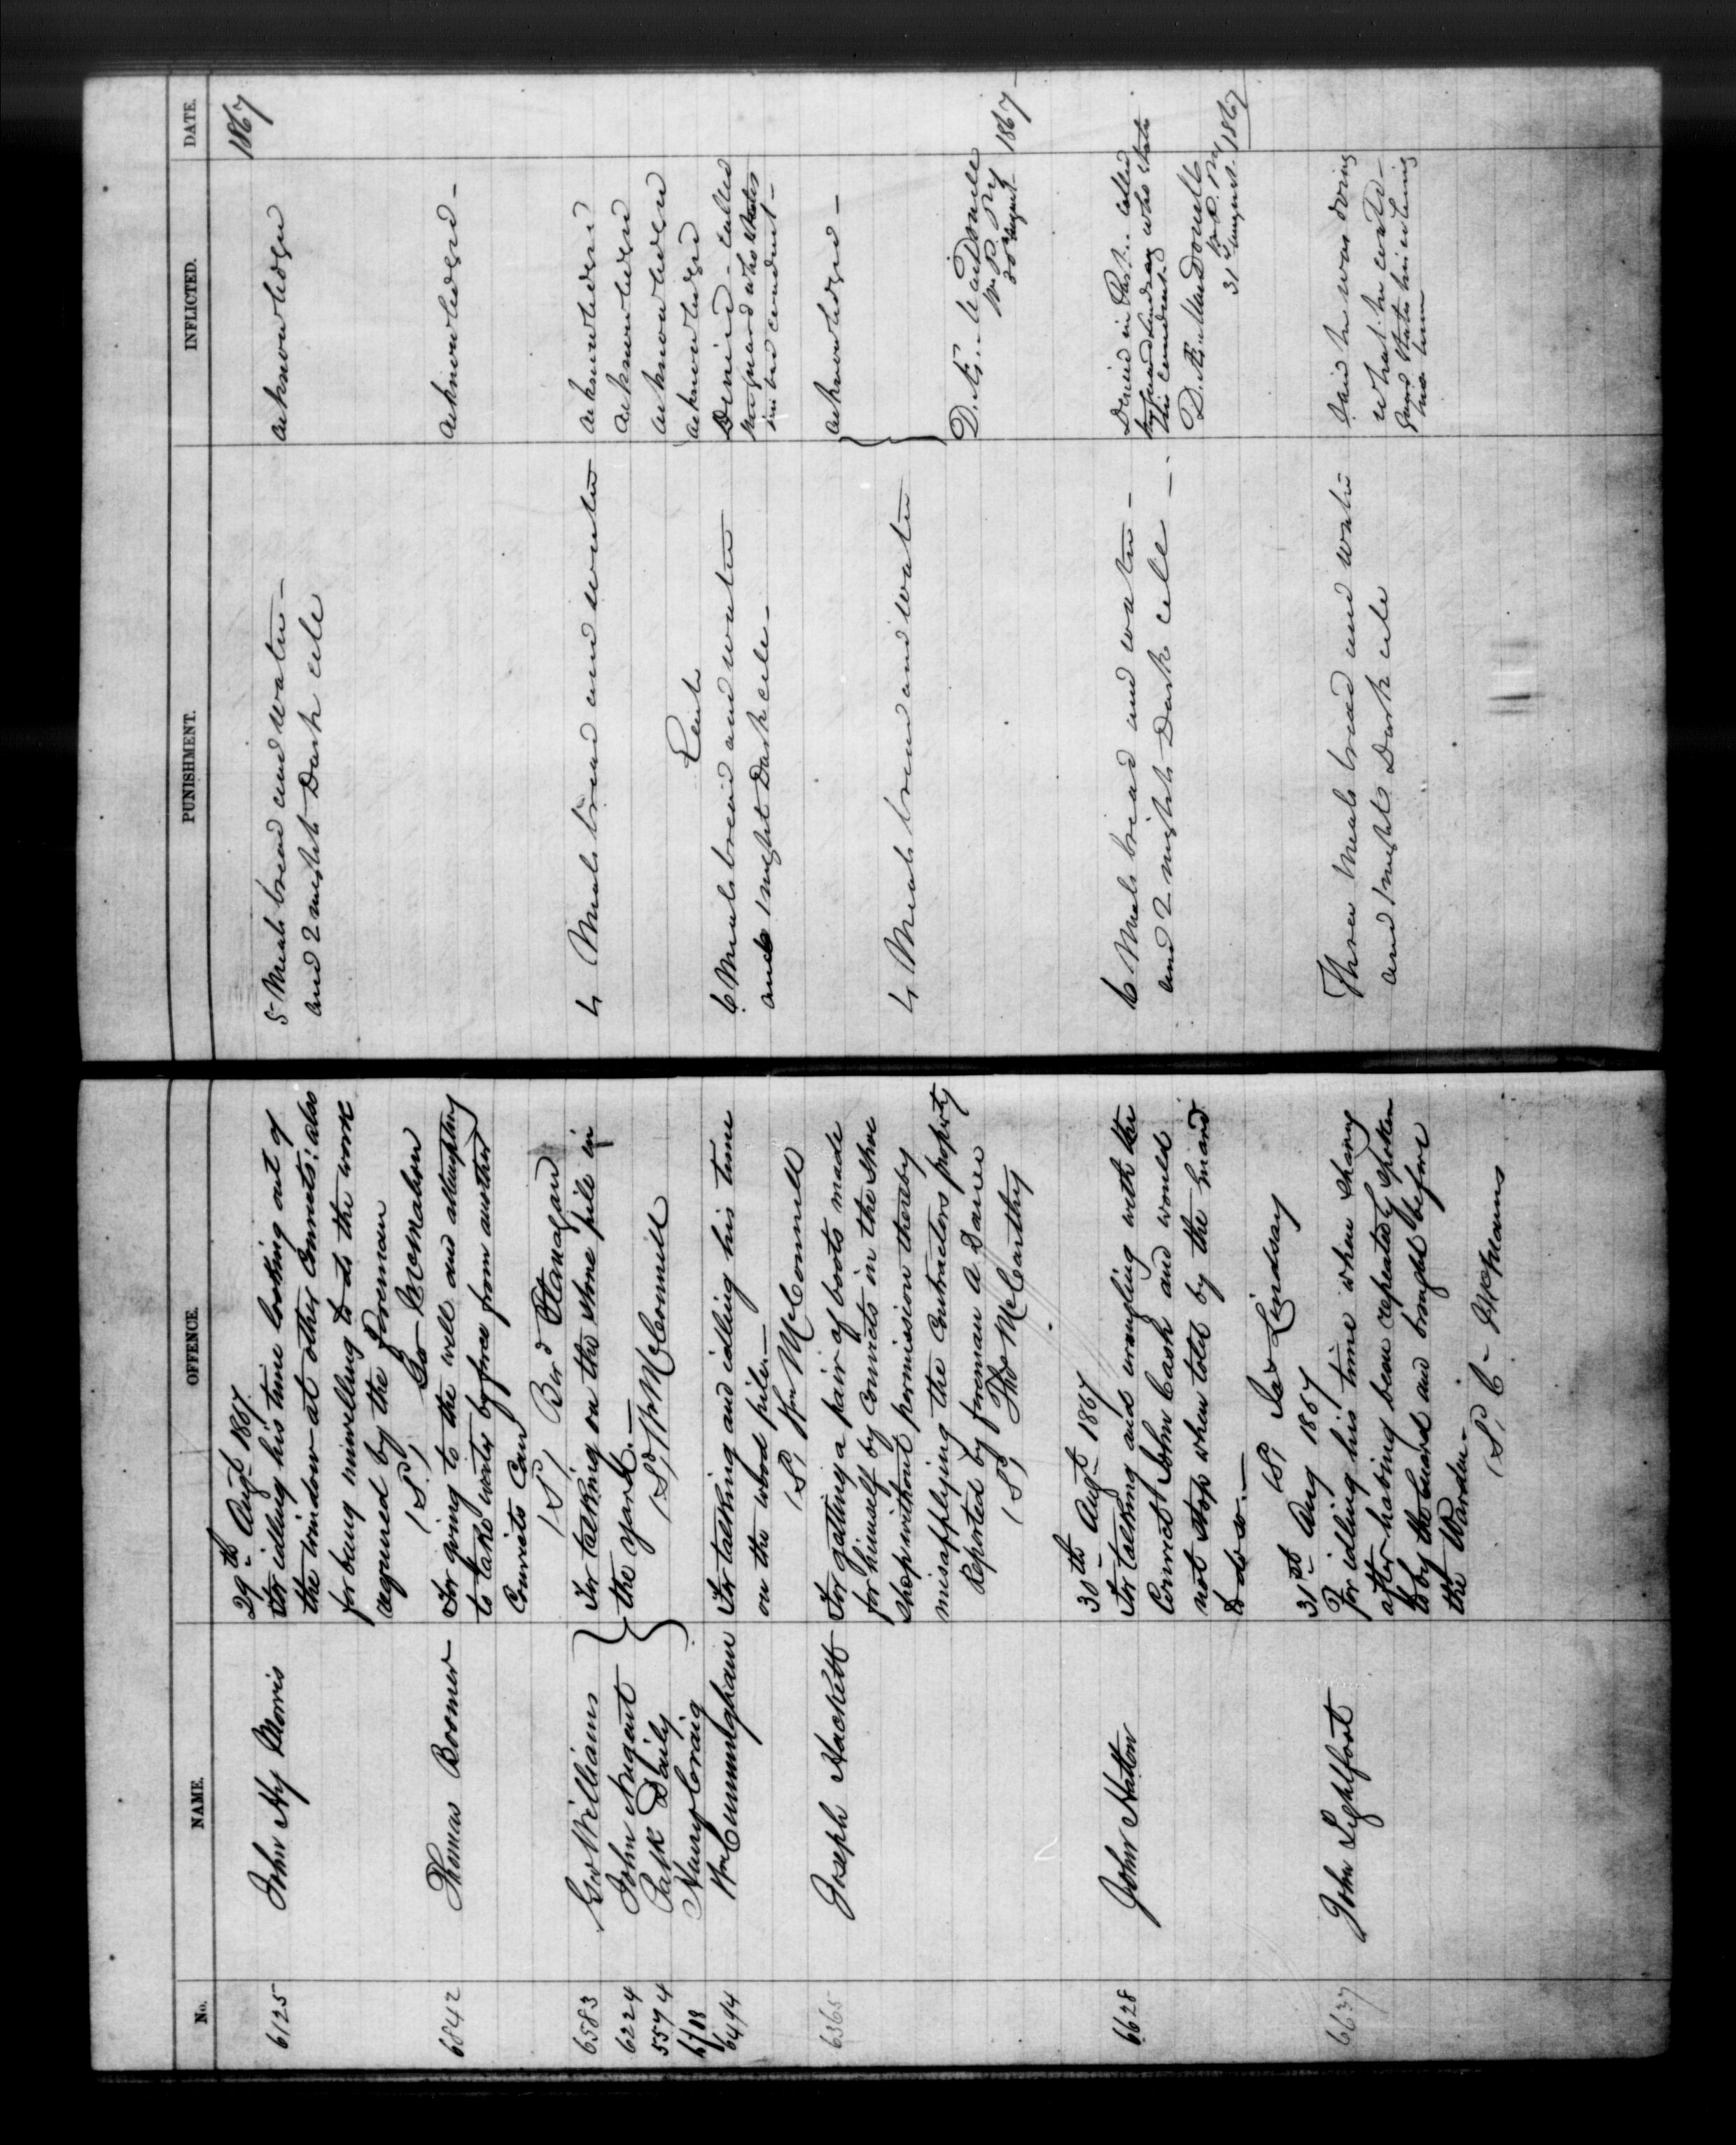 No. NAME. OFFENCE. PUNISHMENT. INFLICTED. DATE.
29th Augt 1867 1867
6125 John Hy Morris For idling his time looking out of
the window at other Convicts: also
for being unwilling to do the work
required by the Foreman
(Sd) Geo McMahon
5 Meals bread and water—
and 2 nights Dark cell
acknowledged
6842 Thomas Boomer For going to the well and attempting
to take water by force from another
Convicts Can
(Sd) Bard Flanagan
acknowledged—
6583 Geo Williams For talking on the stone pile in
6224 John Nugent the yard.—
5574 Patk Daily (Sd) Wm McConnell
Henry Craig
4 Meals bread and water
acknowledged
acknowledged
acknowledged
acknowledged
6494 Wm Cunningham For talking and idling his time
on the wood pile.—
(Sd) Wm McConnell
6 Meals bread and water
and 1 night Dark cell—
Denied—called
the guard who states
his bad conduct—
6365 Joseph Hackett For getting a pair of boots made
for himself by Convicts in the Shoe
Shop without permission thereby
misapplying the Contractors property
Reported by foreman A Dance
(Sd) Thos McCarthy
4 Meals bread and water
acknowledged—
D. Æ. MacDonell
W. P. Py
30th August 1867—
30th Augt 1867
6628 John Hatton For talking and wrangling with the
Convict John Cash and would
not stop when told by the Guard
to do so.—
(Sd) Jas Lindsay
6 Meals bread and water—
and 2 nights Dark cell—
Denied in Part. Called
the guard Lindsay who states
his conduct
D. Æ. MacDonell
W. P. Py
31st August 1867
31st Aug 1867
6637 John Lightfoot For idling his time when sharing
after having been repeatedly spoken
to by the Guard and brought before
the Warden—
(Sd) C—
Three Meals bread and water
and 1 night Dark cell
Said he was doing
what he could—
guard states him idling